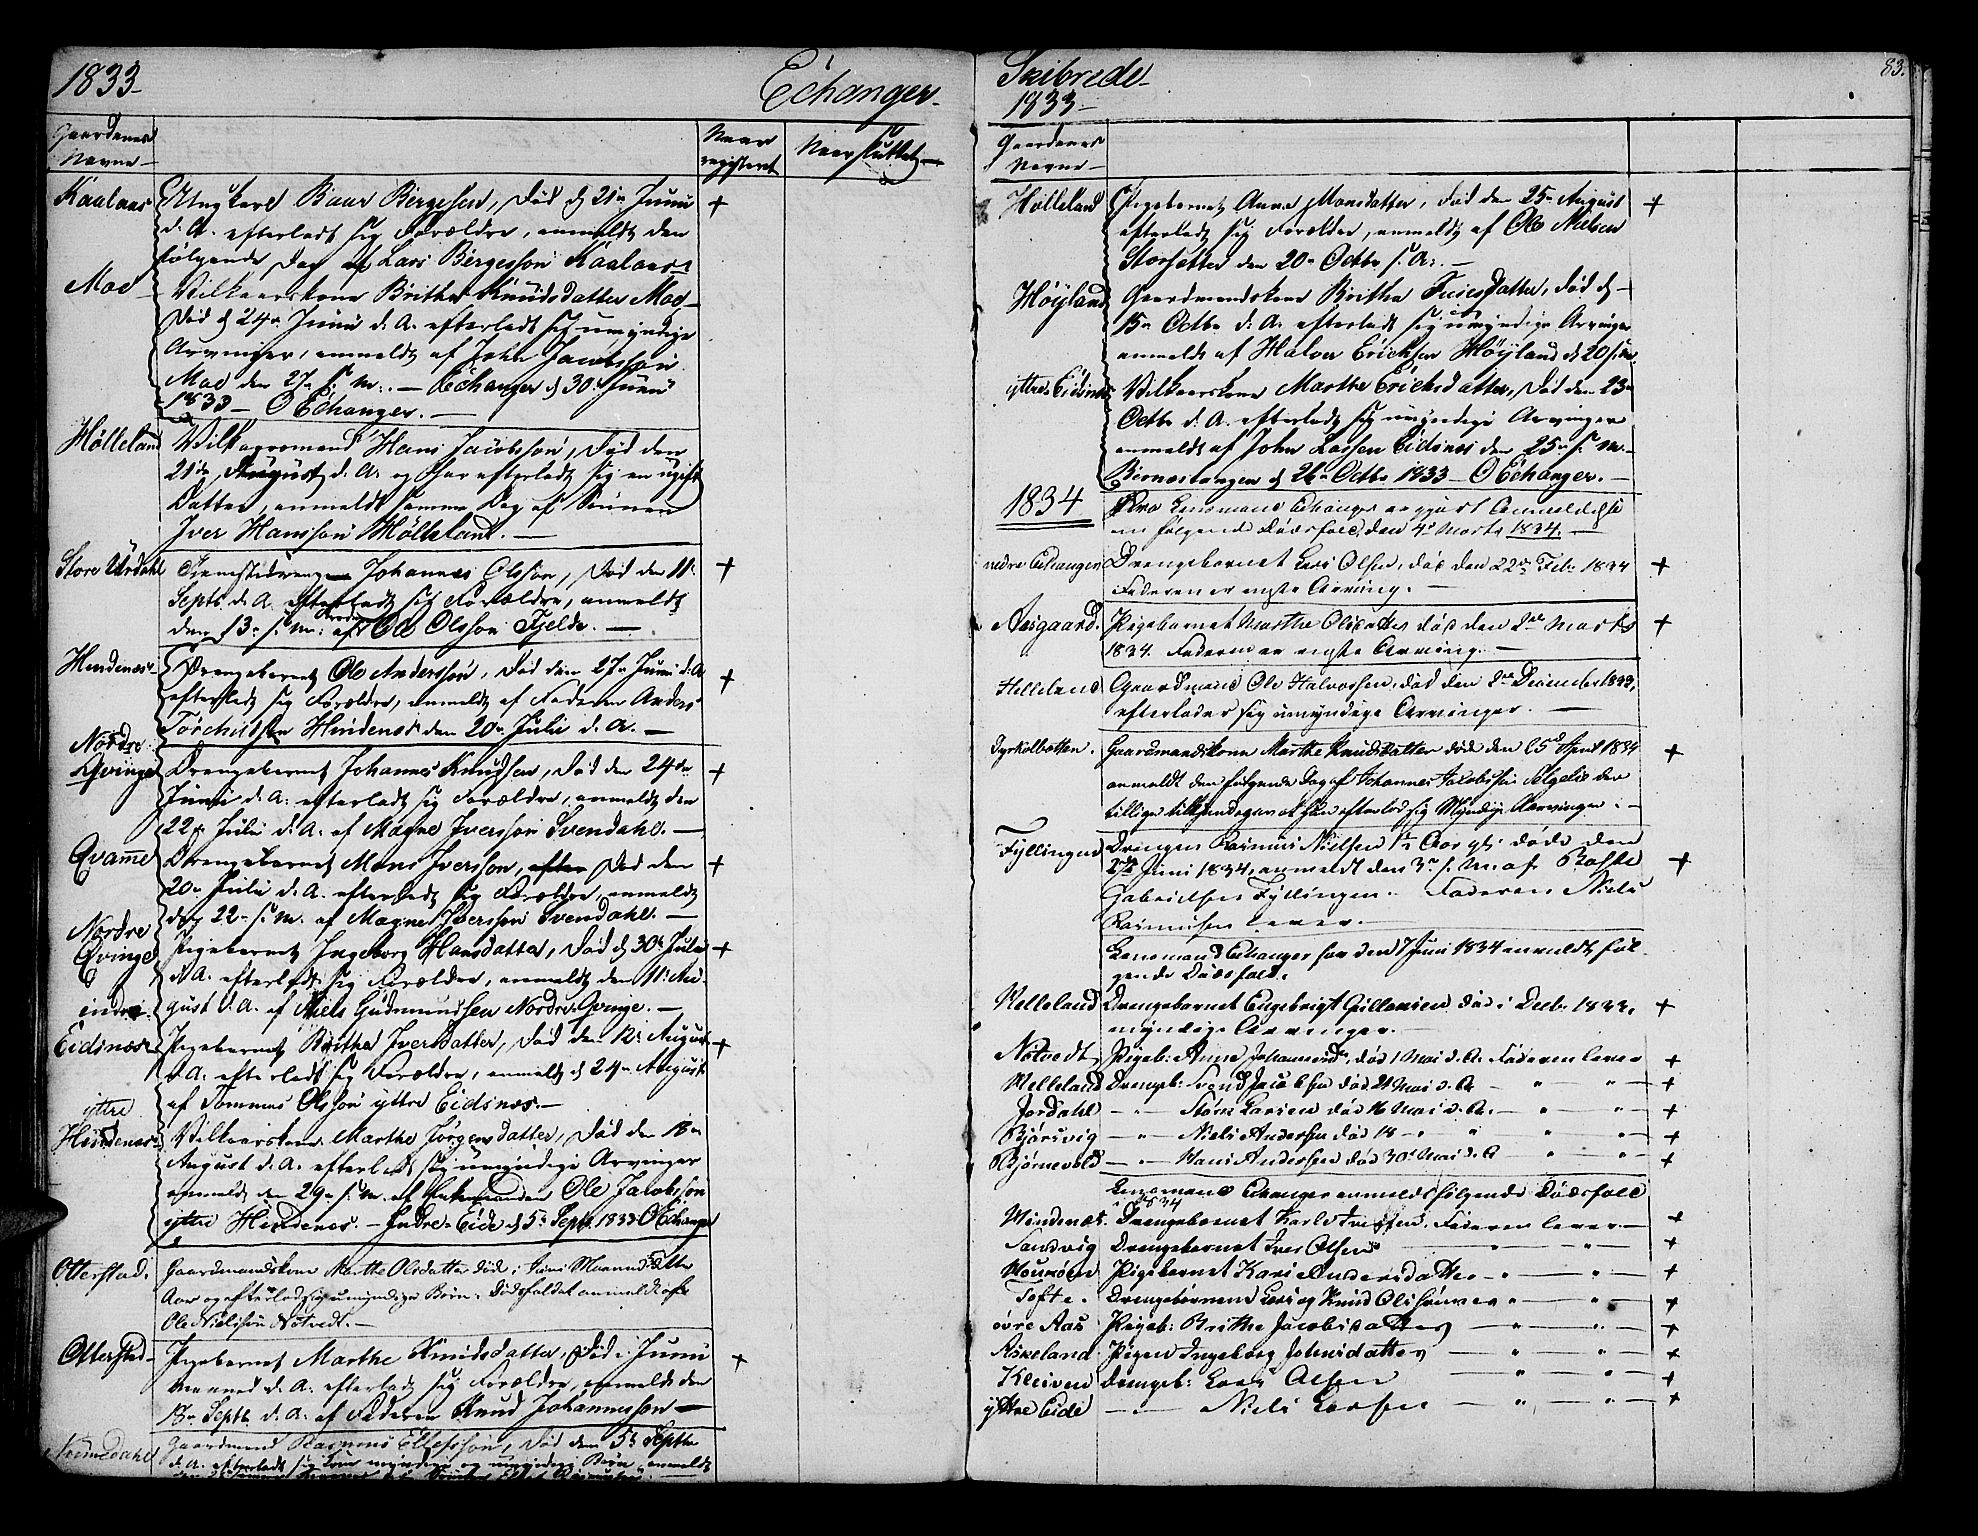 1833
Echanger
Gaardenes
Navne
Naar
registeret
Naar sluttet
Kaalaas
Ungkarl Baar Bergesen, død d 21de Junii
d. A. efterladt sig Forældre, anmeldt den
følgende Dag af Lars Bergesson Kaalaas
Moe
Vilkaarskone Britha Knudsdatter Moe
død d 24de Junii d. A. efterladt sig umyndige
Arvinger, anmeldt af John Jacobsson
Moe den 27de s. M. — Echanger d 30te Junii
1833 — O Echanger. —
Hølleland
Vilkaarsmand Hans Jacobsson, død den
21de August d. A. og har efterladt sig en ugift
Datter, anmeldt samme Dag af Sønnen
Iver Hansson Hølleland. —
Store Urdahl
Johannes Olsson, død den 11te
Septb. d. A. efterladt sig Forældre, anmeldt
den 13de s. M. af Ole Olsson Fjelde. —
Hindenes
Drengebarnet Ole Andersson, død den 27de Junii d. A
efterladt sig Forældre, anmeldt af Faderen Anders
Torchildsen Hindenes den 20de Julii d. A. —
Nordre
Qvinge
Drengebarnet Johannes Knudsen, død den 24de
Junii d. A. efterladt sig Forældre, anmeldt den
22de Julii d. A. af Magne Iversson Svendahl. —
Qvamme
Drengebarnet Mons Iversson, efter død den
20de Julii d. A. efterladt sig Forældre, anmeldt
den 22de s. M. af Magne Iversson Svendahl. —
Nordre
Qvinge
Pigebarnet Ingeborg Hansdatter, død d 30te Julii
d. A. efterladt sig Forældre, anmeldt den 11te Au-
gust d. A. af Niels Gudmundsen Nordre Qvinge. —
indre
Eidsnæs
Pigebarnet Britha Iversdatter, død den 12te August
d. A. efterladt sig Forældre, anmeldt d 24de August
af Tommas Olsson yttre Eidsnæs. —
yttre
Hindenes
Vilkaarskone Marthe Jørgensdatter, død den 18de
August d. A. efterladt sig umyndige Arvinger
anmeldt den 29de s. M. af Enkemanden Ole Jacobsson
yttre Hindenes. — Indre Eide d 5te Septb. 1833 O Echanger
Otterstad.
Gaardmandskone Marthe Olsdatter døde i Junii Maaned dette
Aar og efterlod sig umyndige Børn. Dødsfaldet anmeldt af
Ole Nielsson Notvedt. —
Otterstad
Pigebarnet Marthe Knudsdatter, død i Junii
Maaned d. A. efterladt sig Forældre, anmeldt den
18de Septb. d. A. af Faderen Knud Johannesson —
Gaardmand Rasmus Ellefsson, død den 5te Septbr
d. A. efterladt sig Kone myndige og umyndige Børn, anmeldt
Skibrede
83.
1833
Gaardenes
Navne
Hølleland
Pigebarnet Anna Monsdatter, død den 25de August
efterladt sig Forældre, anmeldt af Ole Nielsen
Storsætter den 20de Octbr. s. A. —
Høyland
Gaardmandskone Britha Datter, død d
15de Octbr. d. A. efterladt sig umyndige Arvinger
anmeldt af Halver Erichsen Høyland d 20 s. M.
yttre Eidsnes
Vilkaarskone Marthe Erichsdatter, død den 23de
Octbr. d. A. efterladt sig umyndige Arvinger
anmeldt af John Larsen Eidsnes den 25de s. M. —
d 26de Octbr. 1833 — O Echanger. —
1834
Fra Lensmand Echanger er gjort Anmeldelse
om følgende Dødsfald, den 4de Marts 1834. —
nedre Echanger
Drengebarnet Lars Olsen, død den 22de Feb. 1834
Faderen er nęste Arving. —
Aasgaard.
Pigebarnet Marthe Olsdatter død den 2den Marts
1834. Faderen er nęste Arving. —
Helleland
Gaardmand Ole Halvorsen, død den 2den December 1833,
efterlader sig umyndige Arvinger. —
Dyrkolbotten.
Gaardmandskone Marthe Knudsdatter død den 25de April 1834
anmeldt den følgende Dag af Johannes Jacobsen der
tillige tilkjendegav at hun efterlod sig Myndige Arvinger. —
Fyllingen
Drengen Rasmus Nielsen 1½ Aar gl: døde den
2de Juni 1834, anmeldt den 3de s. M. af
Gabrielsen Fyllingen. Faderen Niels
Rasmusen lever. —
Lensmand Echanger har den 7 Juni 1834 anmeldt føl-
gende Dødsfald.
Helleland
Drengebarnet Engebrigt død i Decb. 1833.
myndige Arvinger. —
Notvedt
Pigeb: Anne Johannesd., død 1 Mai d. A. Faderen lever
Helleland
Drengeb: Svend Jacobsen død 21 Mai d. A — " — " —
Jordahl
— " — Larsen død 16 Mai d. A. — " — " —
Bjørsvig
— " — Niels Andersen død 18 — " " " — " —
Bjørnevold
— " — Hans Andersen død 30te Mai d. A " — " —
Lensmand Echanger anmeldt følgende Dødsfald
i 1834
Hindenes.
Drengebarnet Karl Iversen. Faderen lever —
Sandvig
Drengebarnet Iver Olsen — " — " —
Pigebarnet Kari Andersdatter — " — " —
Tofte.
Drengebørnene Lars og Knud Olssønner " — " —
øvre Aas
Pigeb: Brithe Jacobsdatter — " — " —
Askeland.
Pigen Ingeborg Johnsdatter — " — " —
Kleiven
Drengeb: Lars Olsen — " — " —
yttre Eide
— " — Niels Larsen — " — " —